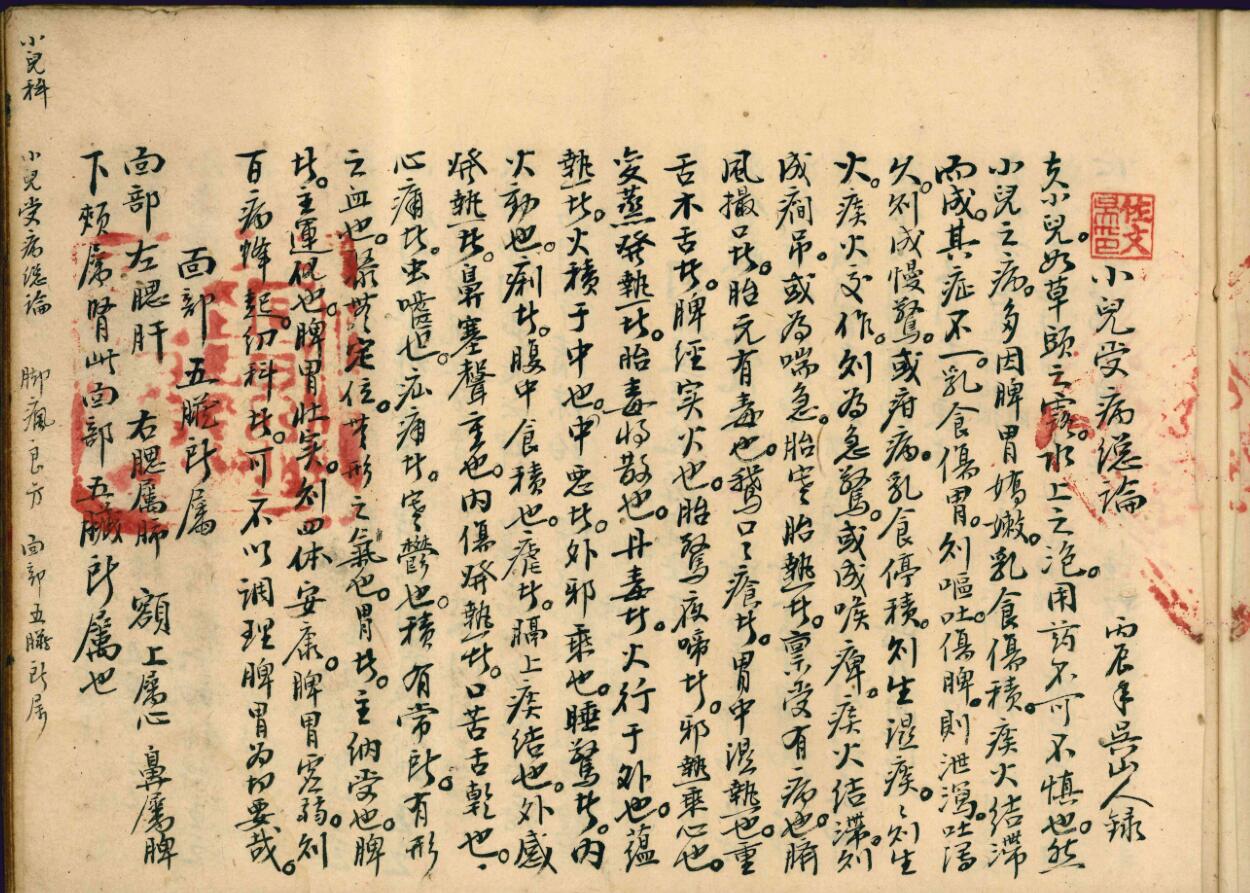 小兒受病總論 丙辰年吳山人錄
夫小兒如草頭之露。水上之泡。用药不可不慎也。然
小兒之病。多因脾胃嬌嫩。乳食傷積。痰火結滯
而成。其症不一。乳食傷胃。則嘔吐。傷脾。則泄瀉。吐瀉
久。則成慢驚。或疳病。乳食停積。則生湿痰。〻則生
火。痰火交作。則為急驚。或成喉痺。痰火结滞。則
成癇吊。或為喘急。胎寒胎熱者。禀受有病也。臍
風撮口者。胎元有毒也。鵝口〻瘡者。胃中濕熱也。重
舌木舌者。脾經实火也。胎驚夜啼者。邪熱乘心也。
变蒸發熱者。胎毒將散也。丹毒者。火行于外也。蕴
熱者。火積于中也。中恶者。外邪乘也。睡驚者。内
火動也。痢者。腹中食積也。瘧者。膈上痰结也。外感
發熱者。鼻塞聲重也。内傷發熱者。口苦舌乾也。
心痛者。虫嚙也。疝痛者。寒鬱也。積有常所。有形
之血也。聚無定位。無形之氣也。胃者。主纳受也。脾
者。主運化也。脾胃壮实。則四体安康。脾胃虚弱。則
百病蜂起。幼科者。可不以調理脾胃為切要哉。
面部五臟所屬
面部左腮肝 右腮屬肺 額上屬心 鼻屬脾
下頦屬腎此面部五臟所屬也
小兒科 小兒受病總論 脚瘋良方 面部五臟所屬